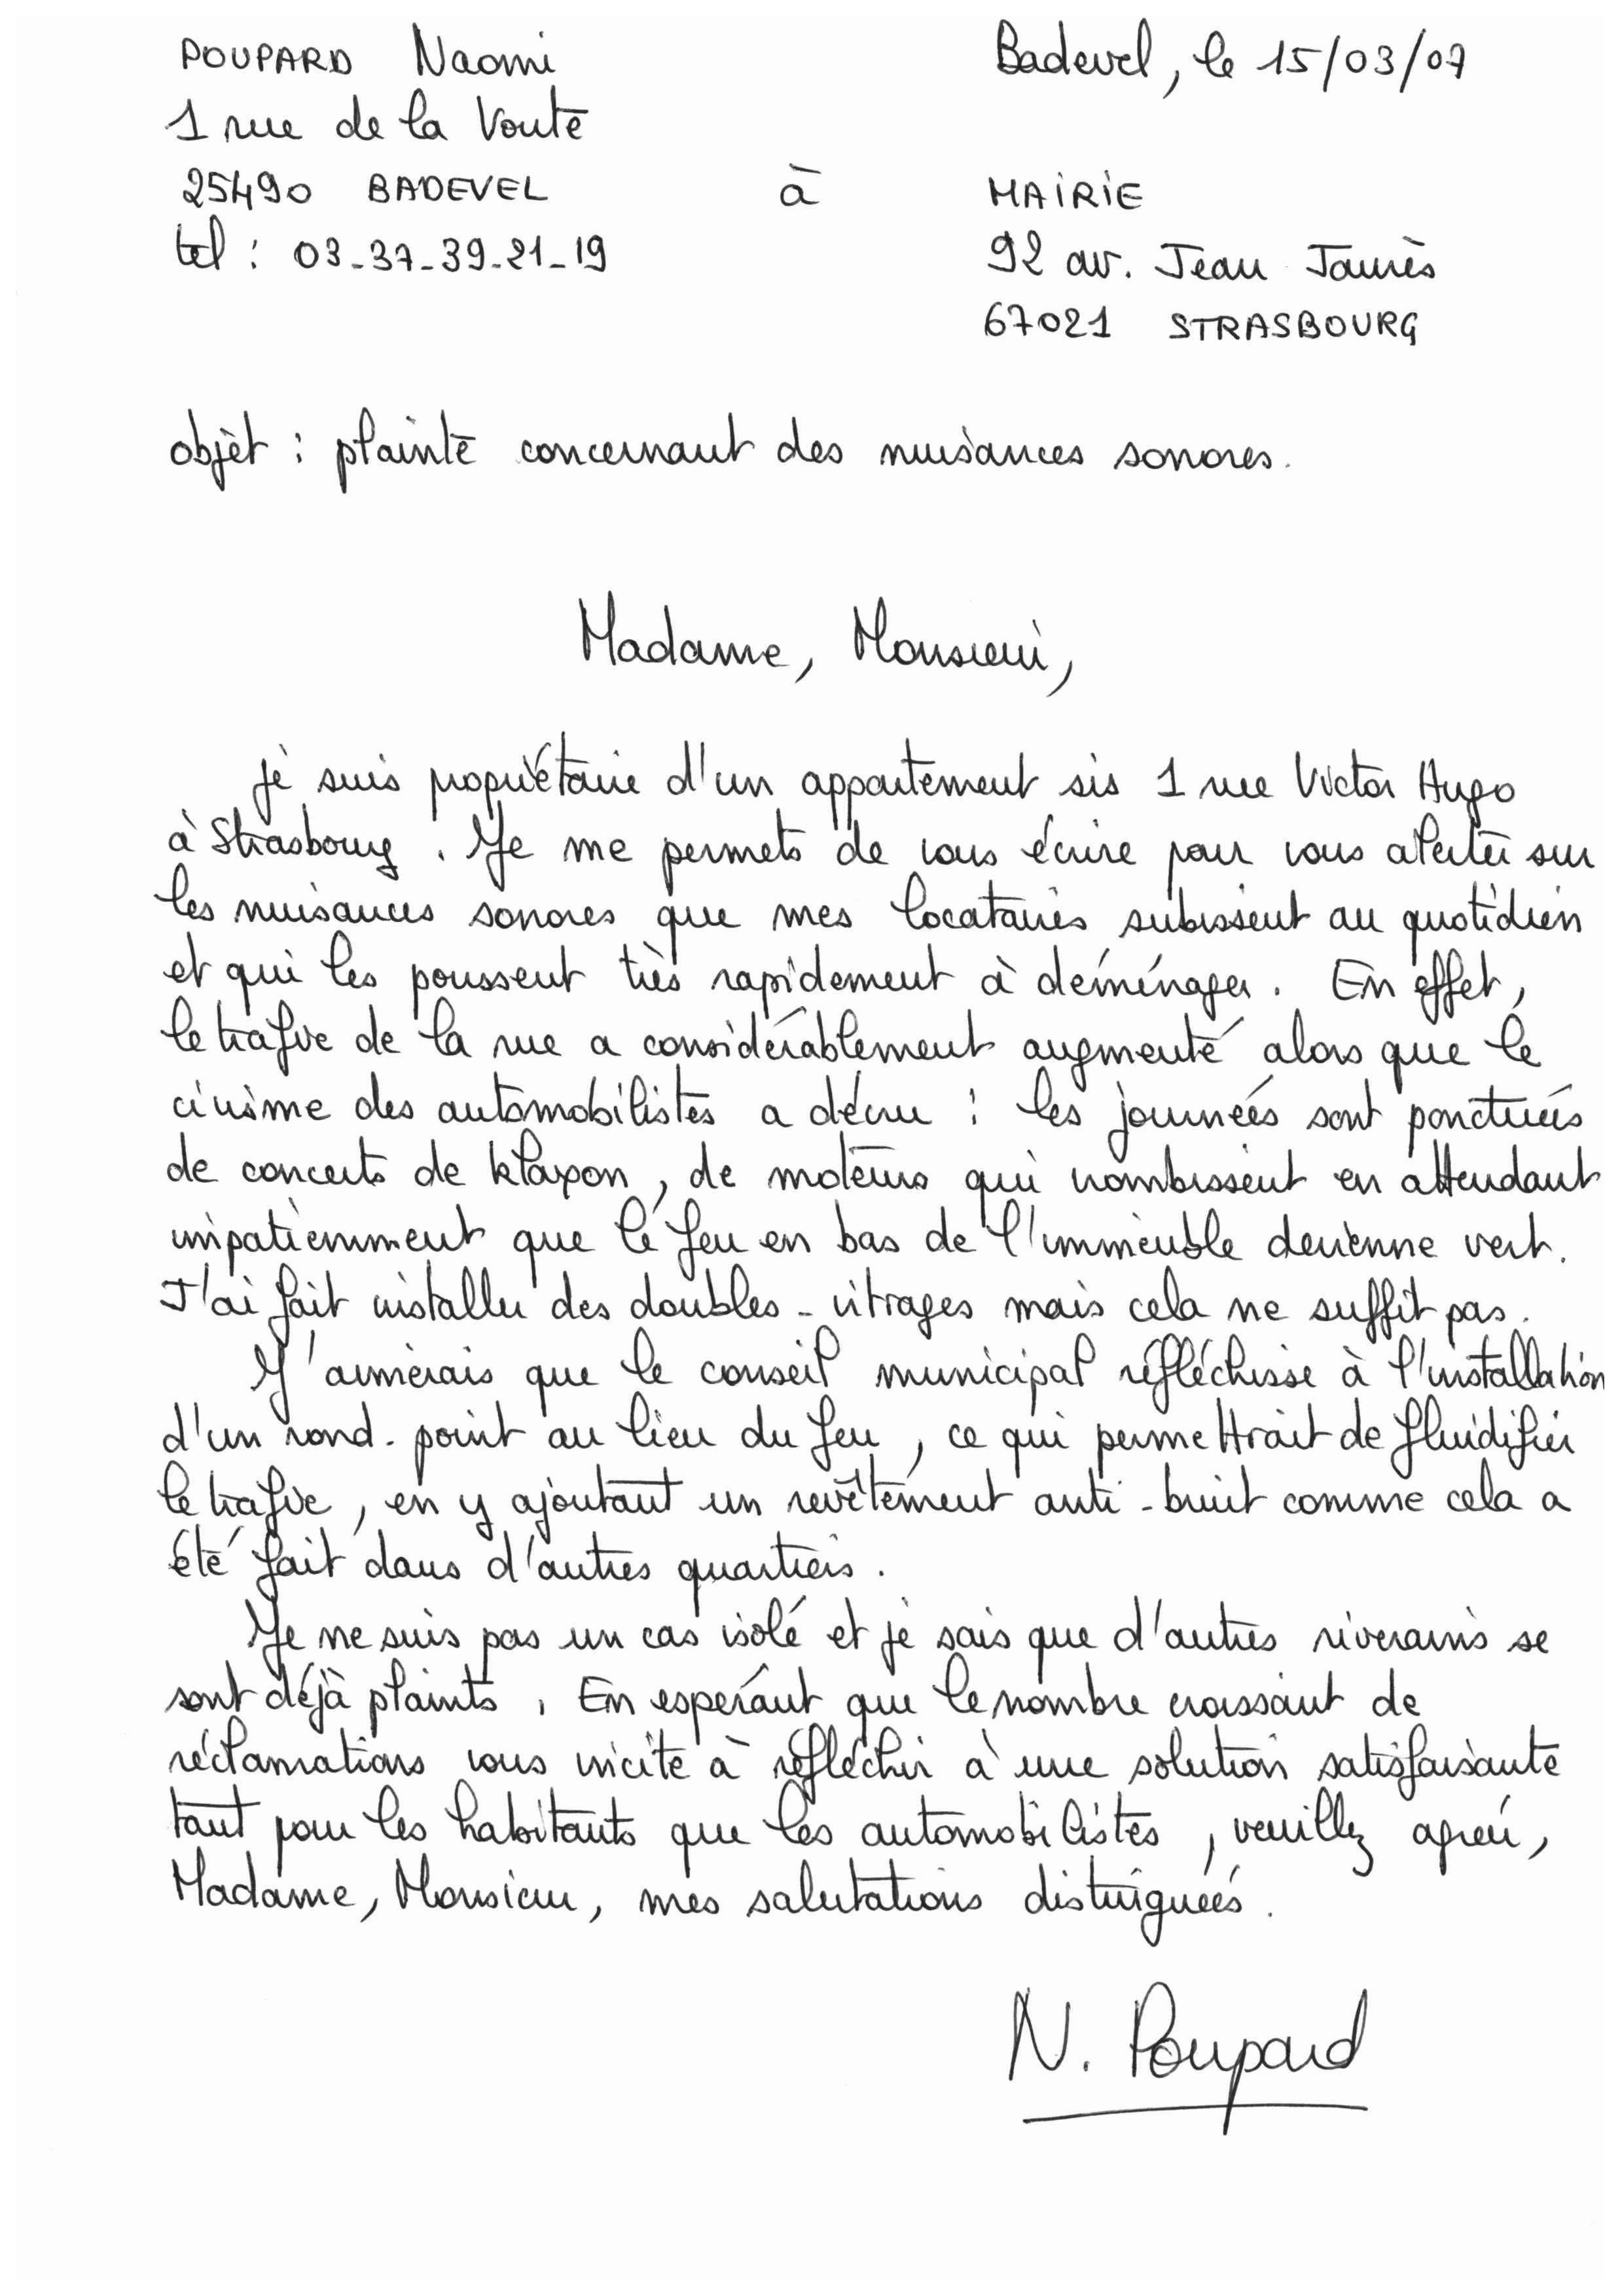 POUPARD Naomi
Badevel, le 15/03/07
1 rue de la Voute
25490 BADEVEL
à
MAIRIE
tel : 03-37-39-21-19
92 av. Jean Jaurès
67021 STRASBOURG
objet : plainte concernant des nuisances sonores.
Madame, Monsieur,
je suis propriétaire d'un appartement sis 1 rue Victor Hugo
à Strasbourg. Je me permets de vous écrire pour vous alerter sur
les nuisances sonores que mes locataires subissent au quotidien
et qui les poussent très rapidement à déménager. En effet,
le trafic de la rue a considérablement augmenté alors que le
civisme des automobilistes a décru : les journées sont ponctuées
de concerts de klaxon, de moteurs qui vrombissent en attendant
impatiemment que le feu en bas de l'immeuble devienne vert.
J'ai fait installer des doubles-vitrages mais cela ne suffit pas.
J'aimerais que le conseil municipal réfléchisse à l'installation
d'un rond-point au lieu du feu, ce qui permettrait de fluidifier
le trafic, en y ajoutant un revêtement anti-bruit comme cela a
été fait dans d'autres quartiers.
Je ne suis pas un cas isolé et je sais que d'autres riverains se
sont déjà plaints. En espérant que le nombre croissant de
réclamations vous incite à réfléchir à une solution satisfaisante
tant pour les habitants que les automobilistes, veuillez agréer,
Madame, Monsieur, mes salutations distinguées.
N. Poupard